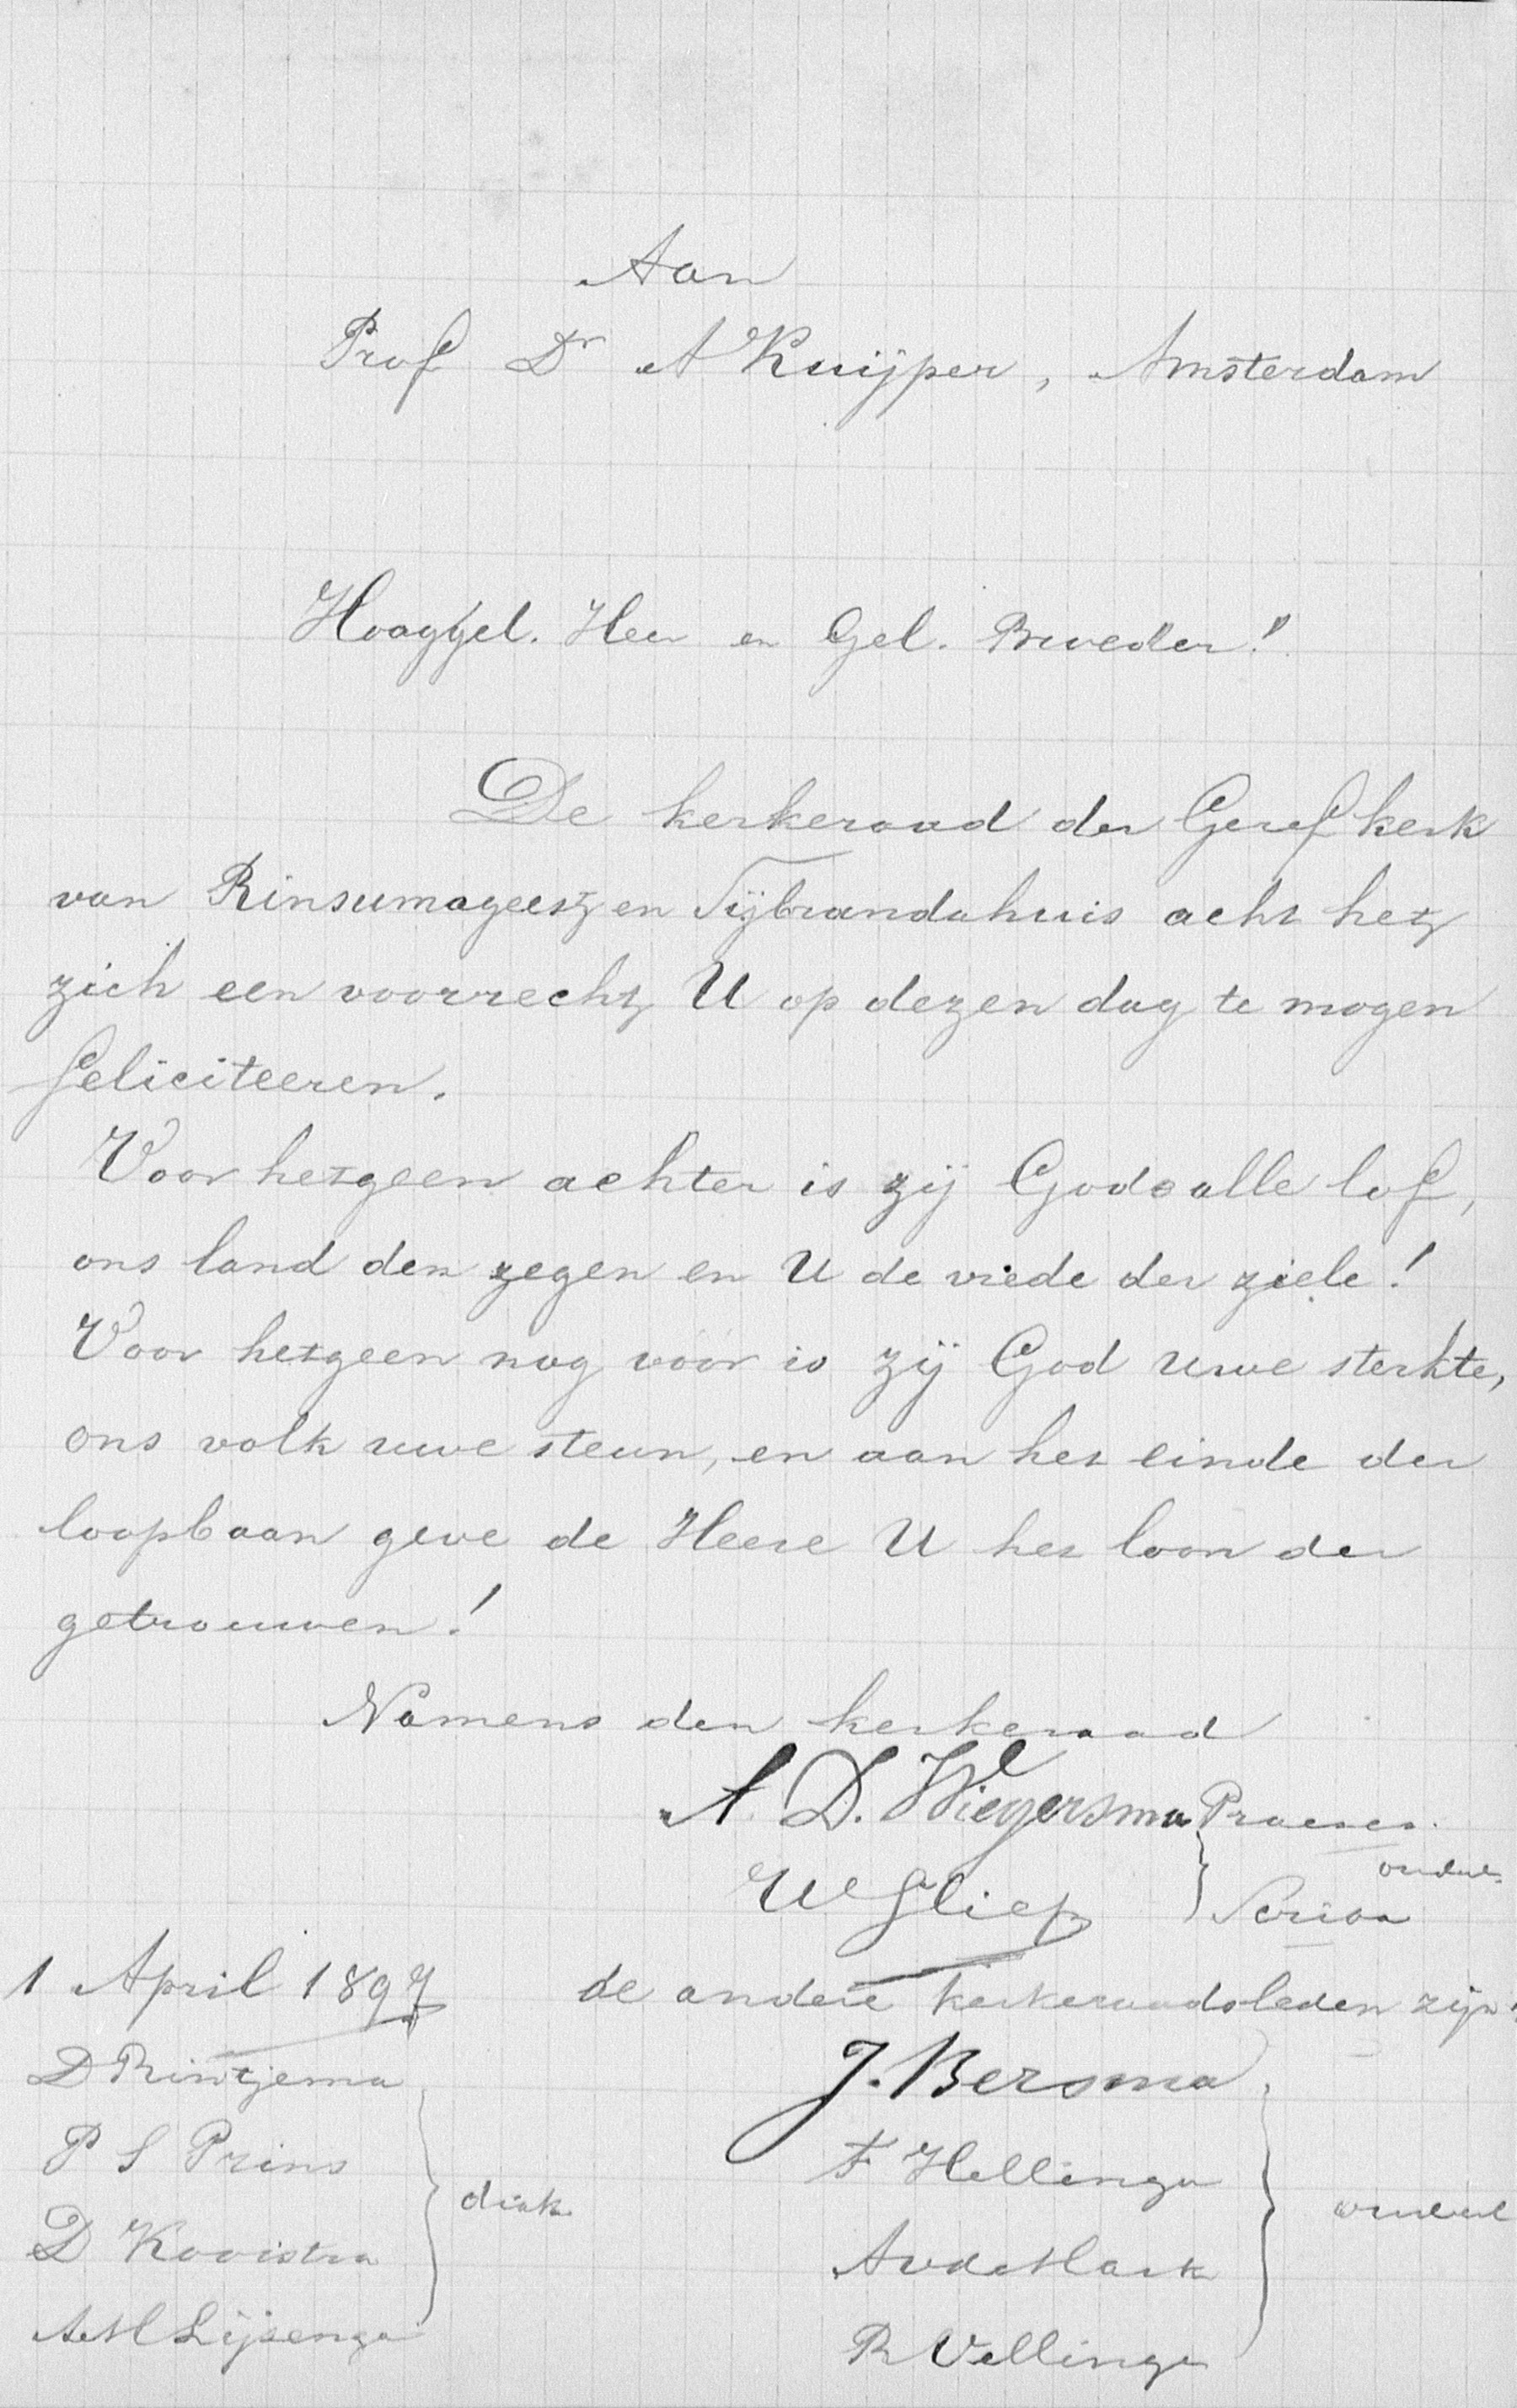 Aan
Prof Dr A Kuijper, Amsterdam
Hooggel. Heer en Gel. Broeder!
De kerkeraad der Geref kerk
van Rinsumageest en Sijbrandahuis acht het
zich een voorrecht U op dezen dag te mogen
feliciteeren.
Voor hetgeen achter is zij Gode alle lof,
ons land den zegen en U de vrede der ziele!
Voor hetgeen nog vóór is zij God uwe sterkte,
ons volk uwe steun, en aan het einde der
loopbaan geve de Heere U het loon der
getrouwen!
Namens den kerkeraad
A. D. Wiegersma Praeses.
ouderl.
Scriba
1 April 1897
de andere kerkeraadsleden zijn:
D Rintjema
P S Prins
D Kooistra
diak.
J. Bersma
F Hellinga
A v d Mark
R Vellinga
ouderl